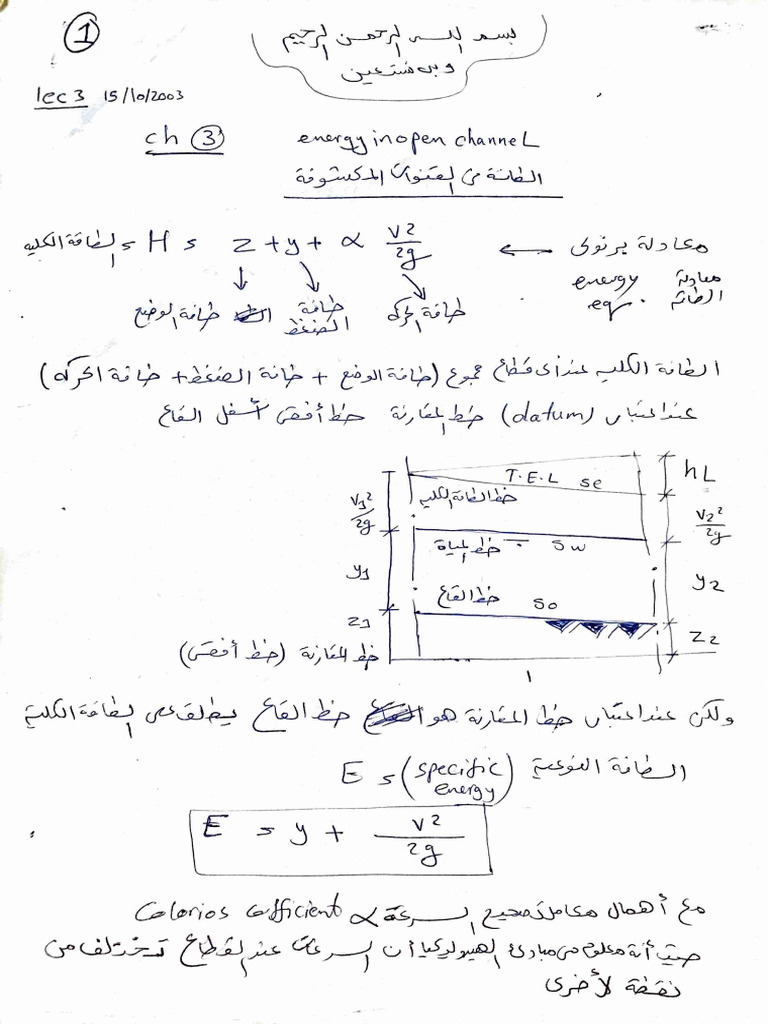 ①
بسم الله الرحمن الرحيم
وبه نستعين
lec 3 15/10/2003
ch ③ energy in open channel
الطاقة فى القنوات المكشوفة
معادلة برنولى ← الطاقة الكليه = H = Z + y + α V²/2g
معادلة الطاقة energy eq.
طاقة الوضع طاقة الضغط طاقة الحركه
الطاقة الكليه عند أى قطاع مجموع (طاقة الوضع + طاقة الضغط + طاقة الحركه)
عند اعتبار (datum) خط المقارنة خط أفقى أسفل القاع
T.E.L Se hL
خط الطاقة الكليه
V₁²/2g V₂²/2g
خط المياة Sw
y₁ y₂
خط القاع So
Z₁ Z₂
خط المقارنة (خط أفقى)
ولكن عند اعتبار خط المقارنة هو خط القاع يطلق على الطاقة الكلية
الطاقة النوعية (specific energy) = E
E = y + V²/2g
مع أهمال معامل تصحيح السرعة α Colorios cofficient
حيث أنه معلوم من مبادئ الهيدروليكا أن السرعات عند القطاع تختلف من
نقطة لأخرى